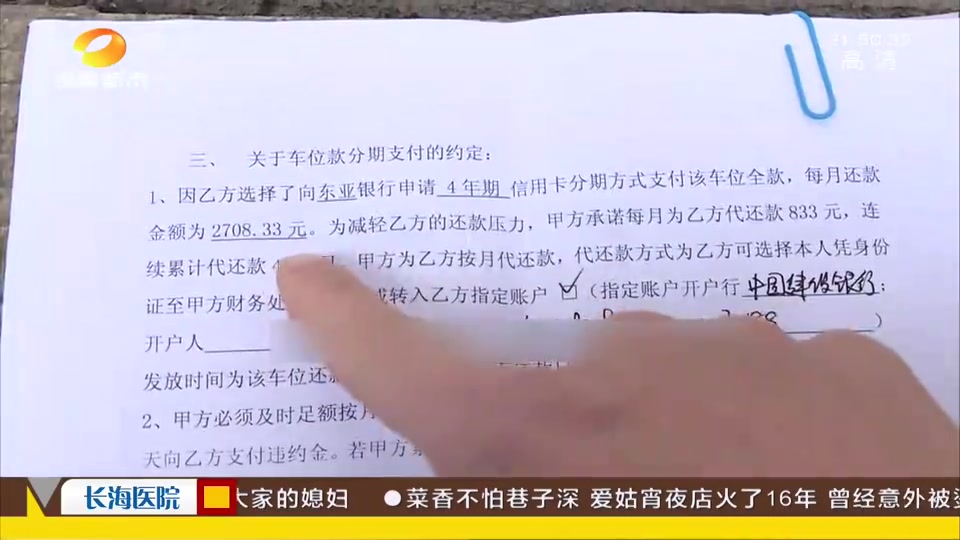 高清
三、 关于车位款分期支付的约定：
1、因乙方选择了向东亚银行申请 4 年期 信用卡分期方式支付该车位全款，每月还款
金额为 2708.33 元。为减轻乙方的还款压力，甲方承诺每月为乙方代还款 833 元，连
续累计代还款 甲方为乙方按月代还款，代还款方式为乙方可选择本人凭身份
证至甲方财务处 或转入乙方指定账户 ☑（指定账户开户行 中国建设银行；
开户人 ）
发放时间为该车位还
2、甲方必须及时足额按
天向乙方支付违约金。若甲方
长海医院 大家的媳妇 ●菜香不怕巷子深 爱姑宵夜店火了16年 曾经意外被